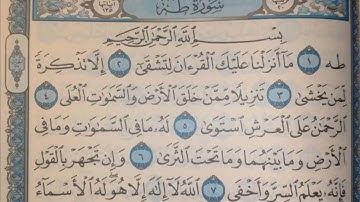 سُورَةُ طه
بِسْمِ اللَّهِ الرَّحْمَٰنِ الرَّحِيمِ
طه ١ مَا أَنزَلْنَا عَلَيْكَ الْقُرْءَانَ لِتَشْقَىٰ ٢ إِلَّا تَذْكِرَةً
لِّمَن يَخْشَىٰ ٣ تَنزِيلًا مِّمَّنْ خَلَقَ الْأَرْضَ وَالسَّمَٰوَٰتِ الْعُلَى ٤
الرَّحْمَٰنُ عَلَى الْعَرْشِ اسْتَوَىٰ ٥ لَهُ مَا فِي السَّمَٰوَٰتِ وَمَا فِي
الْأَرْضِ وَمَا بَيْنَهُمَا وَمَا تَحْتَ الثَّرَىٰ ٦ وَإِن تَجْهَرْ بِالْقَوْلِ
فَإِنَّهُ يَعْلَمُ السِّرَّ وَأَخْفَى ٧ اللَّهُ لَا إِلَٰهَ إِلَّا هُوَ لَهُ الْأَسْمَاءُ